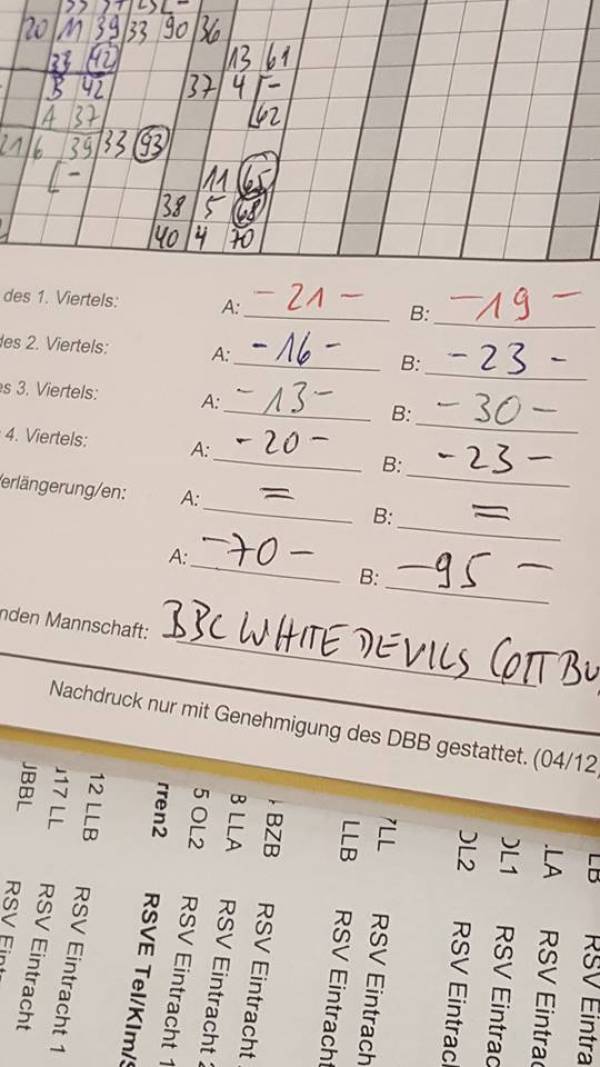 20 11 39 33 90 36
33 42 13 61
B 42 37 4 -
A 37 62
21 6 39 33 93
- 11 65
38 5 68
40 4 70
des 1. Viertels: A: - 21 - B: - 19 -
des 2. Viertels: A: - 16 - B: - 23 -
es 3. Viertels: A: - 13 - B: - 30 -
4. Viertels: A: - 20 - B: - 23 -
Verlängerung/en: A: = B: =
A: - 70 - B: - 95 -
nden Mannschaft: BBC WHITE DEVILS COTTBU
Nachdruck nur mit Genehmigung des DBB gestattet. (04/12)
LB RSV Eintra
.LA RSV Eintrac
OL1 RSV Eintrac
OL2 RSV Eintrac
LL RSV Eintrach
LLB RSV Eintracht
BZB RSV Eintracht
8 LLA RSV Eintracht 2
5 OL2 RSV Eintracht 1
rren2 RSVE Tel/Klm/S
12 LLB RSV Eintracht 1
U17 LL RSV Eintracht
JBBL RSV Eint